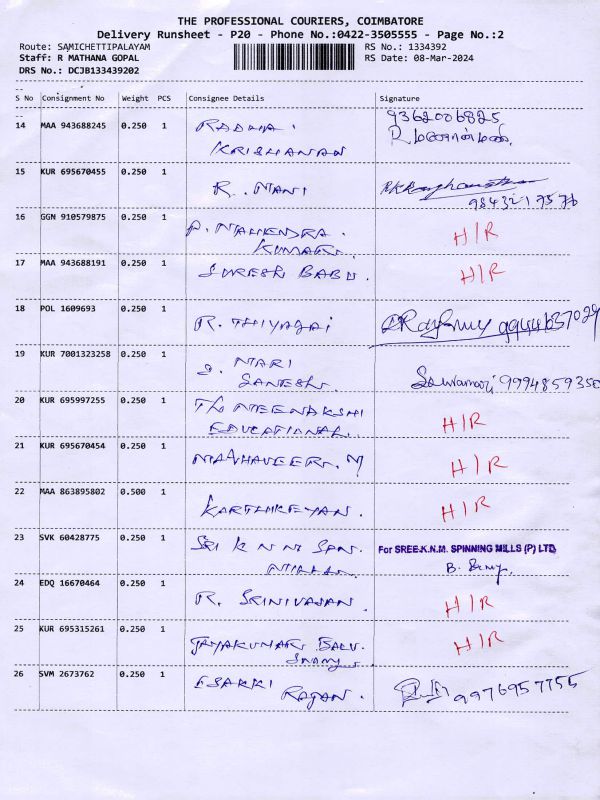 THE PROFESSIONAL COURIERS, COIMBATORE
Delivery Runsheet - P20 - Phone No.:0422-3505555 - Page No.:2
Route: SAMICHETTIPALAYAM RS No.: 1334392
Staff: R MATHANA GOPAL RS Date: 08-Mar-2024
DRS No.: DCJB133439202
S No Consignment No Weight PCS Consignee Details Signature
14 MAA 943688245 0.250 1 RADHA 9362006825
KRISHANAN R
15 KUR 695670455 0.250 1 R. MANI
9843217576
16 GGN 910579875 0.250 1 P. MAHENDRA. H/R
KUMAR
17 MAA 943688191 0.250 1 SURESH BABU. H/R
18 POL 1609693 0.250 1 R. THIYAGAI 9944637029
19 KUR 7001323258 0.250 1 S. MARI
GANESH. 9994859350
20 KUR 695997255 0.250 1 TH MEENAKSHI H/R
EDUCATIONAL.
21 KUR 695670454 0.250 1 MAHAVEER. M H/R
22 MAA 863895802 0.500 1 KARTHIKEYAN. H/R
23 SVK 60428775 0.250 1 SRI K N M SPN. For SREE.K.N.M. SPINNING MILLS (P) LTD
B.
24 EDQ 16670464 0.250 1 R. SRINIVASAN. H/R
25 KUR 695315261 0.250 1 JAYAKUMAR BALU. H/R
SAMY
26 SVM 2673762 0.250 1 ESAKKI 9976957755
RAJAN.